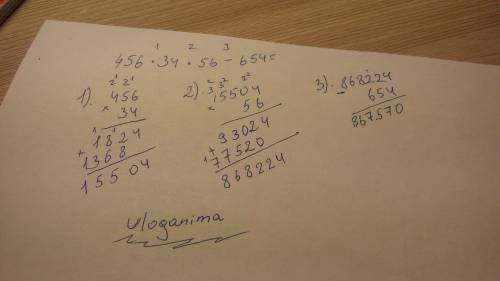 1 2 3
456 · 34 · 56 - 654 =
1). 456
× 34
1824
+ 1368
15504
2). 15504
× 56
93024
+ 77520
868224
3). 868224
- 654
867570
Uloganima